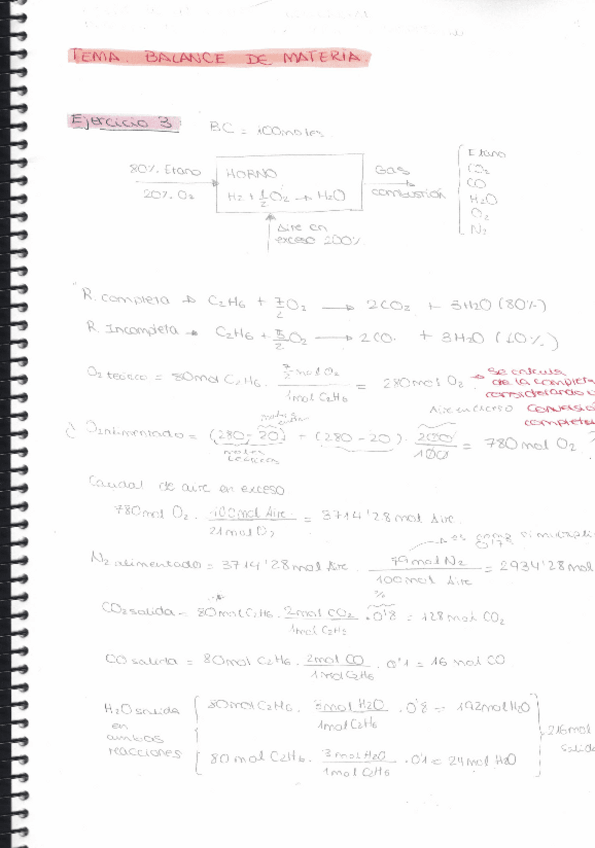 TEMA. BALANCE DE MATERIA
Ejercicio 3: BC = 100 moles.
80% Etano
20% O2
HORNO
H2 + 1/2 O2 → H2O
Gas
combustión
Etano
CO2
CO
H2O
O2
N2
Aire en
exceso 200%
R. completa → C2H6 + 7/2 O2 → 2CO2 + 3H2O (80%)
R. Incompleta → C2H6 + 5/2 O2 → 2CO. + 3H2O (10%)
O2 teórico = 80mol C2H6 · 7/2 mol O2 / 1mol C2H6 = 280mol O2
→ se calcula
de la completa
considerando
conversión
completa
Aire en exceso
¿ O2 alimentado = (280-20) + (280-20) · 200/100 = 780 mol O2 ?
moles
teóricos
Caudal de aire en exceso
780mol O2 · 100mol Aire / 21mol O2 = 3714'28 mol Aire.
N2 alimentado = 3714'28 mol Aire · 79mol N2 / 100mol Aire = 2934'28 mol
CO2 salida = 80mol C2H6 · 2mol CO2 / 1mol C2H6 · 0'8 = 128 mol CO2
CO salida = 80mol C2H6 · 2mol CO / 1mol C2H6 · 0'1 = 16 mol CO
H2O salida
en
ambas
reacciones
80mol C2H6 · 3mol H2O / 1mol C2H6 · 0'8 = 192mol H2O
80 mol C2H6 · 3mol H2O / 1mol C2H6 · 0'1 = 24mol H2O
216mol
salida